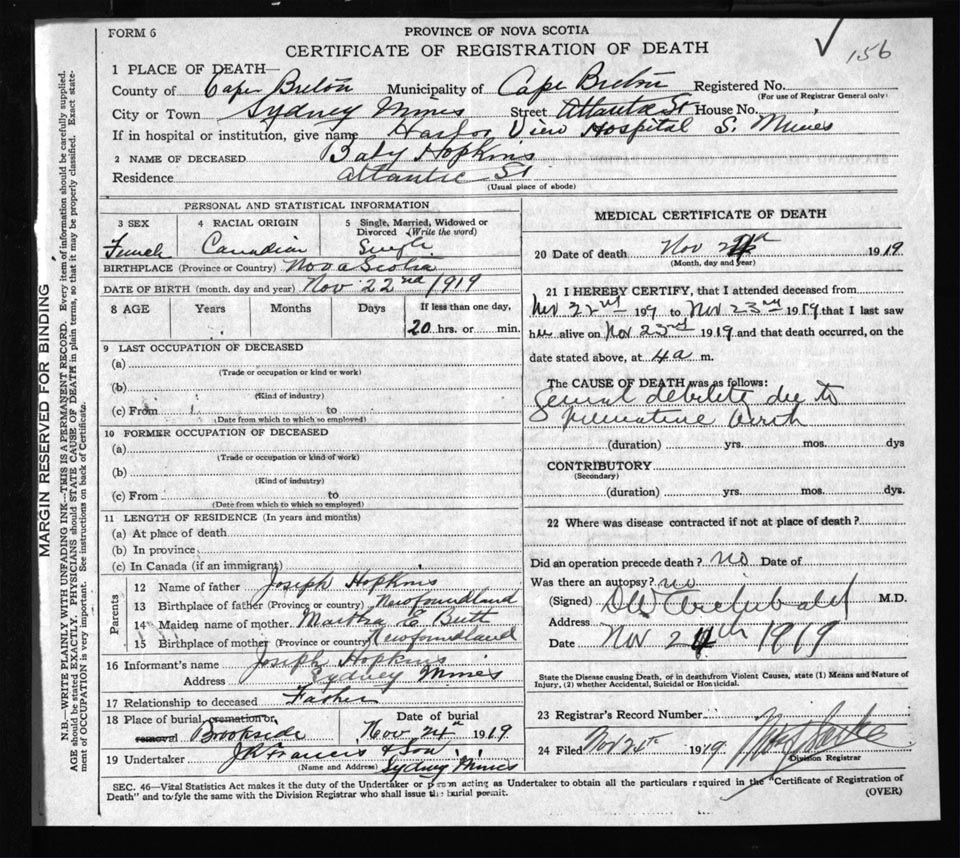 FORM 6
PROVINCE OF NOVA SCOTIA
CERTIFICATE OF REGISTRATION OF DEATH
✓ 156
1 PLACE OF DEATH—
County of Cape Breton Municipality of Cape Breton Registered No.
(For use of Registrar General only)
City or Town Sydney Mines Street Atlantic St House No.
If in hospital or institution, give name Harbor View Hospital S. Mines
2 NAME OF DECEASED Baby Hopkins
Residence Atlantic St
(Usual place of abode)
PERSONAL AND STATISTICAL INFORMATION
3 SEX
4 RACIAL ORIGIN
5 Single, Married, Widowed or Divorced (Write the word)
Canadian Single
BIRTHPLACE (Province or Country) Nova Scotia
DATE OF BIRTH (month, day and year) Nov 22nd 1919
8 AGE Years Months Days If less than one day,
20 hrs. or min.
9 LAST OCCUPATION OF DECEASED
(a)
(Trade or occupation or kind or work)
(b)
(Kind of industry)
(c) From to
(Date from which to which so employed)
10 FORMER OCCUPATION OF DECEASED
(a)
(Trade or occupation or kind of work)
(b)
(Kind of industry)
(c) From to
(Date from which to which so employed)
11 LENGTH OF RESIDENCE (In years and months)
(a) At place of death
(b) In province
(c) In Canada (if an immigrant)
Parents
12 Name of father Joseph Hopkins
13 Birthplace of father (Province or country) Newfoundland
14 Maiden name of mother Martha E Butt
15 Birthplace of mother (Province or country) Newfoundland
16 Informant's name Joseph Hopkins
Address Sydney Mines
17 Relationship to deceased Father
18 Place of burial, cremation or removal Brookside
Date of burial
Nov 24th 1919
19 Undertaker J R Francis & Son
(Name and Address) Sydney Mines
MEDICAL CERTIFICATE OF DEATH
20 Date of death Nov 24th 1919
(Month, day and year)
21 I HEREBY CERTIFY, that I attended deceased from
Nov 22nd 191 to Nov 23rd 1919 that I last saw
her alive on Nov 23rd 1919 and that death occurred, on the
date stated above, at 4 a m.
The CAUSE OF DEATH was as follows:
General debility due to
premature birth
(duration) yrs. mos. dys
CONTRIBUTORY
(Secondary)
(duration) yrs. mos. dys.
22 Where was disease contracted if not at place of death?
Did an operation precede death? no Date of
Was there an autopsy? no
(Signed) Archibald M.D.
Address
Date Nov 24th 1919
State the Disease causing Death, or in deaths from Violent Causes, state (1) Means and Nature of
Injury, (2) whether Accidental, Suicidal or Homicidal.
23 Registrar's Record Number
24 Filed Nov 24th 1919
Division Registrar
SEC. 46—Vital Statistics Act makes it the duty of the Undertaker or person acting as Undertaker to obtain all the particulars required in the "Certificate of Registration of
Death" and to fyle the same with the Division Registrar who shall issue the burial permit.
(OVER)
MARGIN RESERVED FOR BINDING
N.B.—WRITE PLAINLY WITH UNFADING INK—THIS IS A PERMANENT RECORD. Every item of information should be carefully supplied.
AGE should be stated EXACTLY. PHYSICIANS should STATE CAUSE OF DEATH in plain terms, so that it may be properly classified. Exact statement
of OCCUPATION is very important. See instructions on back of Certificate.